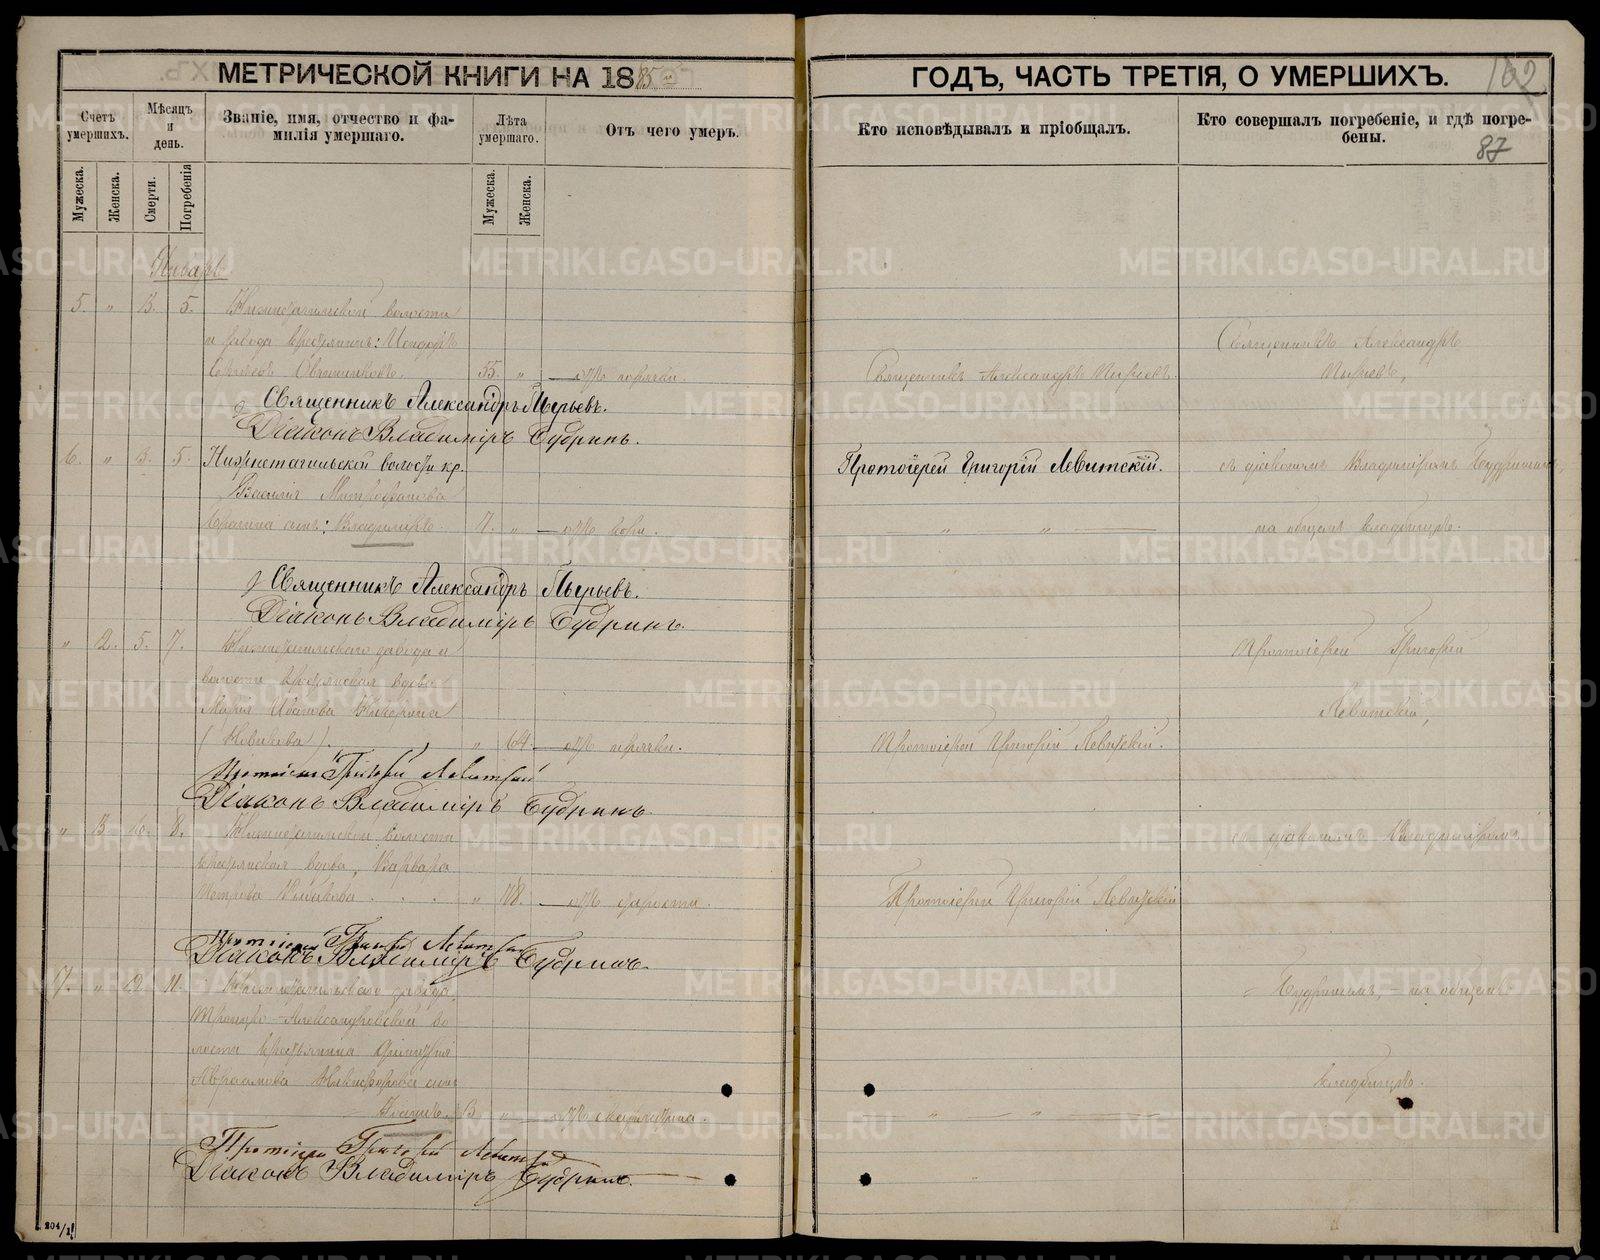 МЕТРИЧЕСКОЙ КНИГИ НА 1885 ГОДЪ, ЧАСТЬ ТРЕТІЯ, О УМЕРШИХЪ.
162
87
Счетъ умершихъ.
Мѣсяцъ и день.
Званіе, имя, отчество и фа-
милія умершаго.
Лѣта умершаго.
Отъ чего умеръ.
Кто исповѣдывалъ и пріобщалъ.
Кто совершалъ погребеніе, и гдѣ погре-
бены.
Мужеска.
Женска.
Смерти.
Погребенія
Мужеска.
Женска.
Январь
5. " 3. 5. Нижнетагильской волости
и завода крестьянинъ:
Овчинниковъ. 55. " отъ горячки. Священникъ Александръ
Священникъ Александръ
Священникъ Александръ
Діаконъ Владиміръ Будринъ.
6. " 3. 5. Нижнетагильской волости кр. Протоіерей Григорій Левитскій. съ діакономъ Владиміромъ Будринымъ,
Василія Митрофанова
сынъ: Владиміръ. 7. " отъ кори. " " на общемъ кладбищѣ.
Священникъ Александръ
Діаконъ Владиміръ Будринъ.
" 2. 5. 7. Нижнетагильскаго завода и Протоіерей Григорій
волости крестьянская вдова
Марія Иванова Левитскій,
(Новикова). " 64 отъ горячки. Протоіерей Григорій Левитскій.
Протоіерей Григорій Левитскій
Діаконъ Владиміръ Будринъ.
" 3. 6. 8. Нижнетагильской волости съ діакономъ Владиміромъ
крестьянская вдова, Варвара
Петрова " 78. отъ старости. Протоіерей Григорій Левитскій
Протоіерей Григорій Левитскій
Діаконъ Владиміръ Будринъ.
7. " 2. 11. Нижнетагильскаго завода, Будринымъ, на общемъ
Троицко-Александровской во-
лости крестьянина
Авраамова Никифорова сынъ кладбищѣ.
3 " отъ " "
Протоіерей Григорій Левитскій
Діаконъ Владиміръ Будринъ.
204/1
METRIKI.GASO-URAL.RU